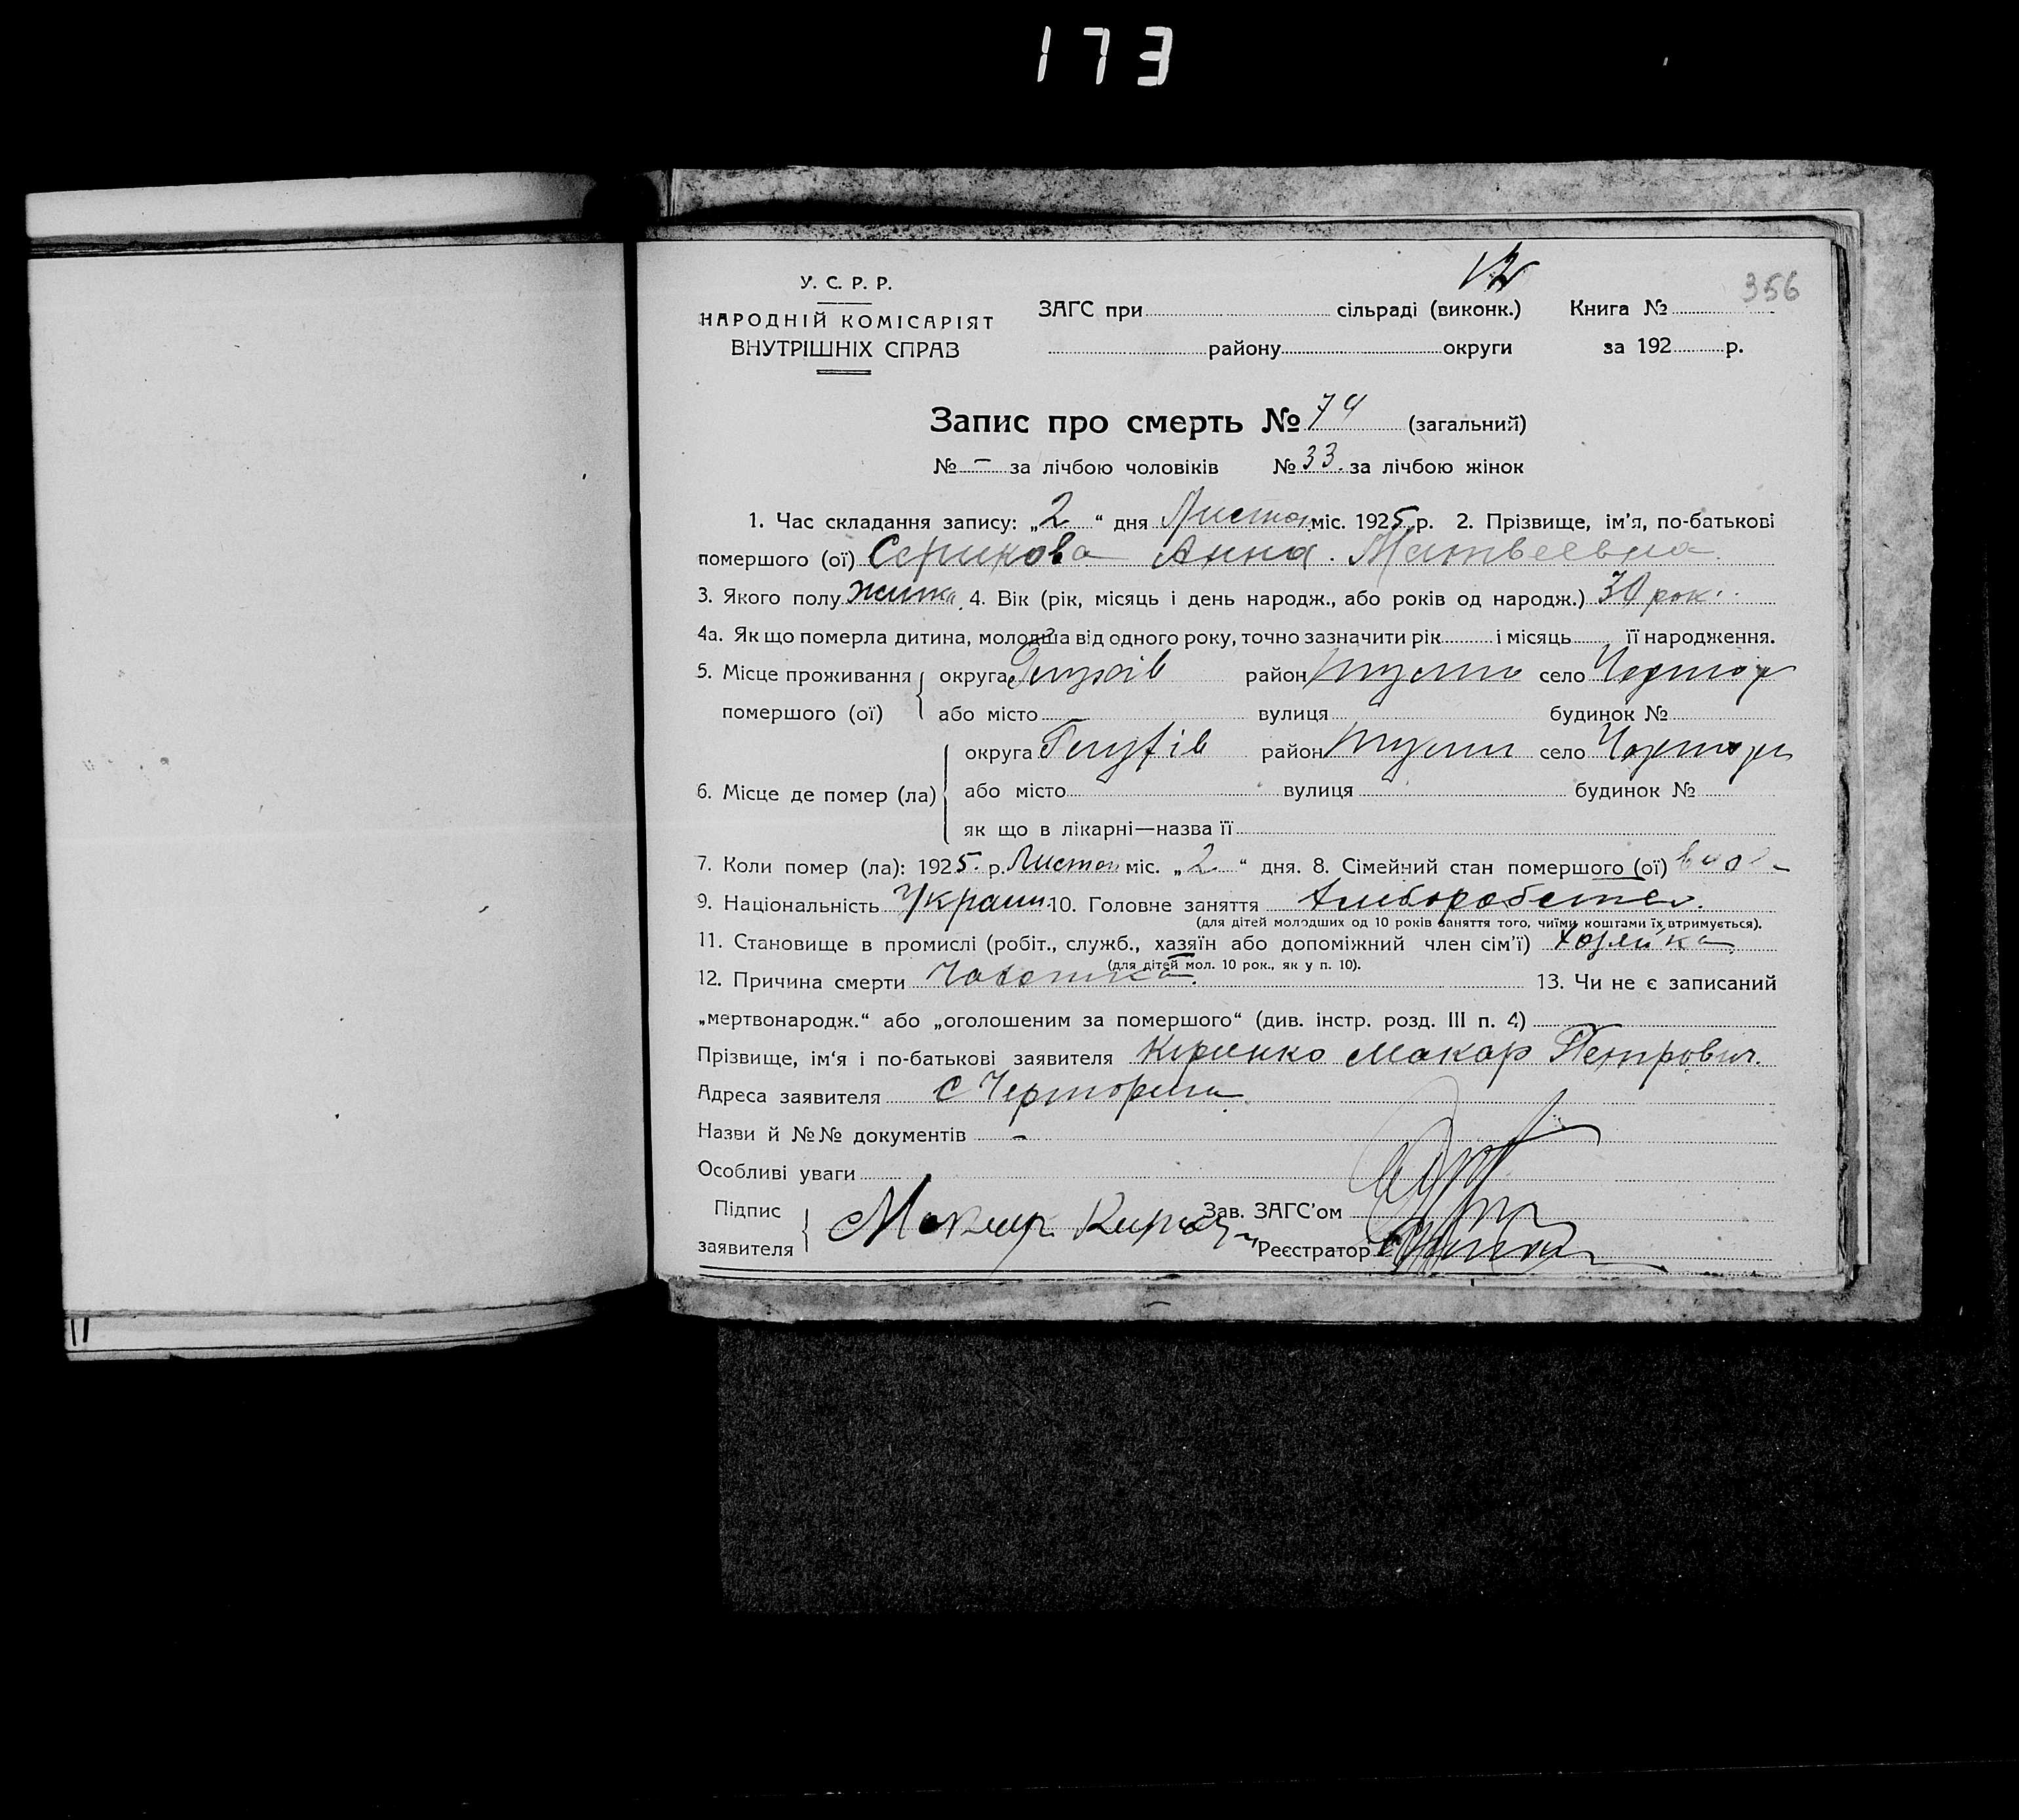 173
12
356
У. С. Р. Р.
НАРОДНІЙ КОМІСАРІЯТ
ВНУТРІШНІХ СПРАВ
ЗАГС при сільраді (виконк.) Книга №
району округи за 192 р.
Запис про смерть № 74 (загальний)
№ – за лічбою чоловіків № 33. за лічбою жінок
1. Час складання запису: „2“ дня Листоп міс. 1925 р. 2. Прізвище, ім’я, по-батькові
помершого (ої) Серикова Анна. Матвеевна
3. Якого полу 4. Вік (рік, місяць і день народж., або років од народж.) 30 рок.
4а. Як що померла дитина, молодша від одного року, точно зазначити рік і місяць її народження.
5. Місце проживання округа Глухів район село
помершого (ої) або місто вулиця будинок №
округа Глухів район село
6. Місце де помер (ла) або місто вулиця будинок №
як що в лікарні—назва її
7. Коли помер (ла): 1925. р. Листоп міс. „2“ дня. 8. Сімейний стан помершого (ої)
9. Національність Украин. 10. Головне заняття
(для дітей молодших од 10 років заняття того, чиїми коштами їх втримується).
11. Становище в промислі (робіт., служб., хазяїн або допоміжний член сім’ї) Хозяйка
(для дітей мол. 10 рок., як у п. 10).
12. Причина смерти Чахотка. 13. Чи не є записаний
„мертвонародж.“ або „оголошеним за помершого“ (див. інстр. розд. III п. 4)
Прізвище, ім‘я і по-батькові заявителя Кириенко Макар Петрович.
Адреса заявителя с
Назви й №№ документів –
Особливі уваги
Підпис Зав. ЗАГС’ом
заявителя Макар Реєстратор